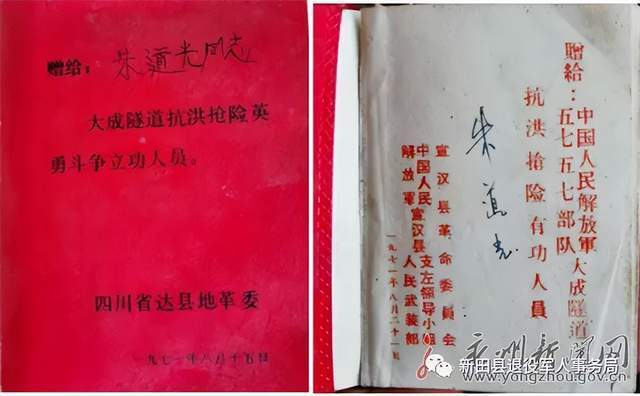 赠给：朱道光同志
大成隧道抗洪抢险英
勇斗争立功人员。
四川省达县地革委
一九七一年八月十五日
贈給：中国人民解放軍大成隧道
五七五七部队
抗洪搶险有功人員
朱道光
宣汉县革命委員会
中国人民宣汉县支左領导小組
解放軍宣汉县人民武装部
一九七一年八月二十一日
永州新闻网
www.yongzhou.gov.cn
新田县退役军人事务局